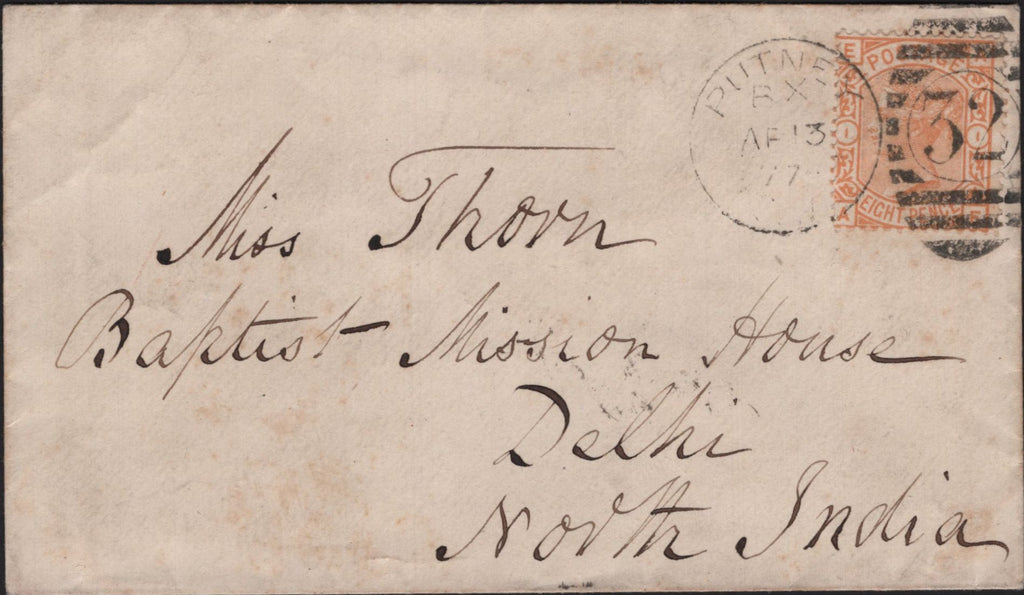 PUTNEY
BX
AP 13
77
E
POSTAGE
1
1
32
A
EIGHT PENCE
E
Miss Thorn
Baptist Mission House
Delhi
North India